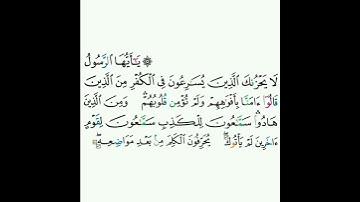 ۞ يَـٰٓأَيُّهَا ٱلرَّسُولُ
لَا يَحۡزُنكَ ٱلَّذِينَ يُسَـٰرِعُونَ فِى ٱلۡكُفۡرِ مِنَ ٱلَّذِينَ
قَالُوٓاْ ءَامَنَّا بِأَفۡوَٰهِهِمۡ وَلَمۡ تُؤۡمِن قُلُوبُهُمۡۛ وَمِنَ ٱلَّذِينَ
هَادُواْۛ سَمَّـٰعُونَ لِلۡكَذِبِ سَمَّـٰعُونَ لِقَوۡمٍ
ءَاخَرِينَ لَمۡ يَأۡتُوكَۖ يُحَرِّفُونَ ٱلۡكَلِمَ مِنۢ بَعۡدِ مَوَاضِعِهِۦۖ